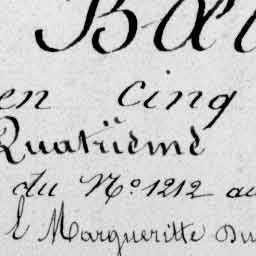 Bœu
en cinq
Quatrïeme
du Nº 1212 au
E Margueritte Du